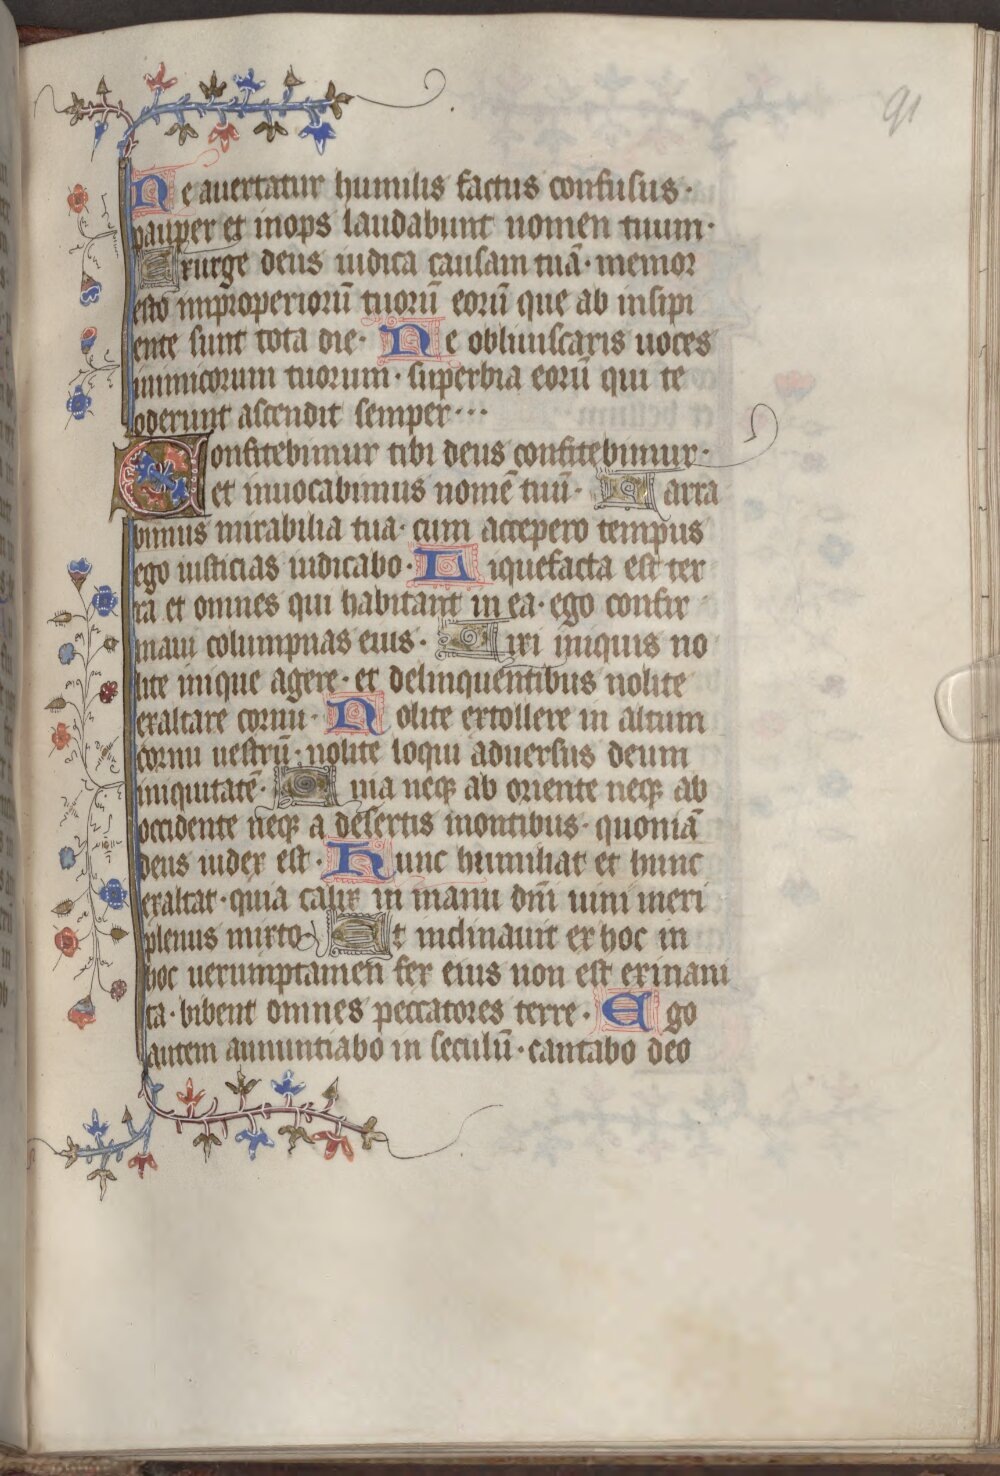 91
Ne auertatur humilis factus confusus·
pauper et inops laudabunt nomen tuum·
Exurge deus iudica causam tuā· memor
esto improperiorū tuorū eorū que ab insipi
ente sunt tota die· Ne obliuiscaris uoces
inimicorum tuorum· superbia eorū qui te
oderunt ascendit semper···
Confitebimur tibi deus confitebimur·
et inuocabimus nomē tuū· Narra
bimus mirabilia tua· cum accepero tempus
ego iusticias iudicabo· Liquefacta est ter
ra et omnes qui habitant in ea· ego confir
maui columpnas eius· Dixi iniquis no
lite inique agere· et delinquentibus nolite
exaltare cornu· Nolite extollere in altum
cornu uestrū· nolite loqui aduersus deum
iniquitatē· Quia neqꝫ ab oriente neqꝫ ab
occidente neqꝫ a desertis montibus· quoniā
deus iudex est· Hunc humiliat et hunc
exaltat· quia calix in manu dn̄i uini meri
plenus mixto· Et inclinauit ex hoc in
hoc uerumptamen fex eius non est exinani
ta· bibent omnes peccatores terre· Ego
autem annuntiabo in seculū· cantabo deo